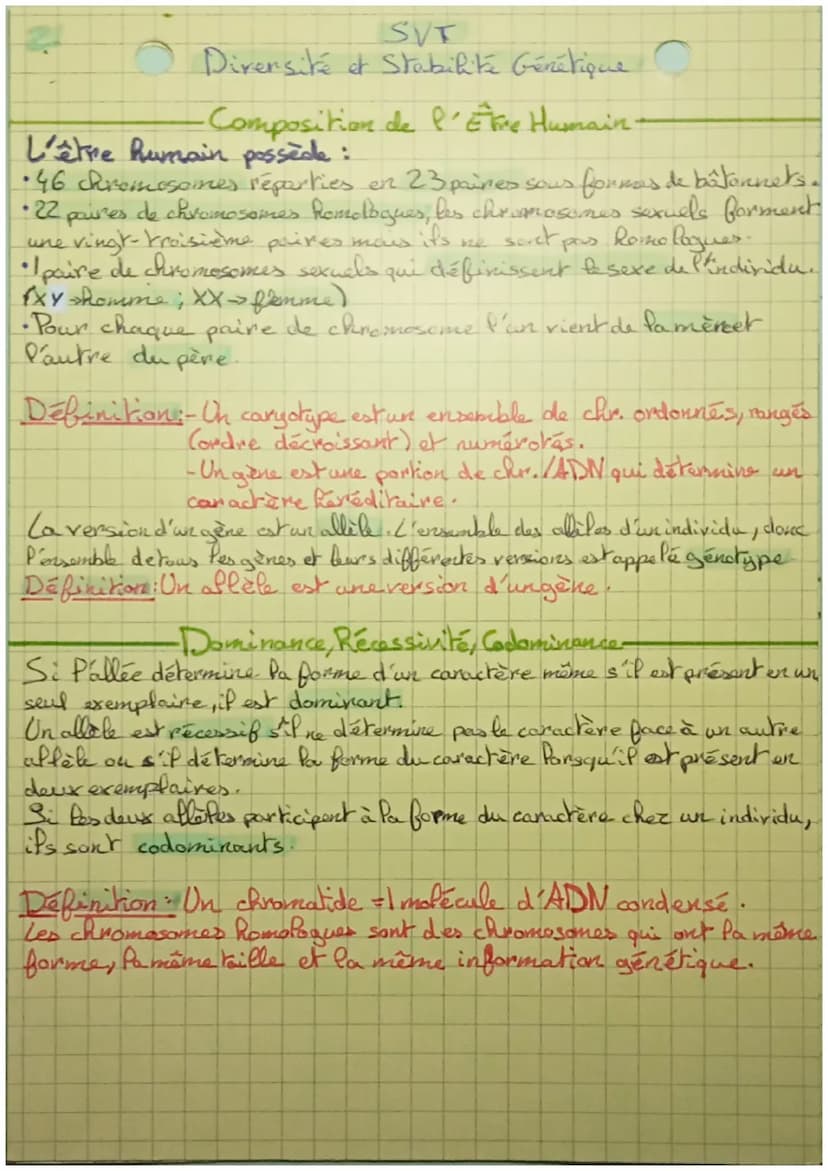 2
SVT
Diversité et Stabilité Génétique
Composition de l'Être Humain
L'être humain possède :
• 46 chromosomes réparties en 23 paires sous formes de bâtonnets.
• 22 paires de chromosomes homologues, les chromosomes sexuels forment
une vingt-troisième paires mais ils ne sont pas homologues.
• 1 paire de chromosomes sexuels qui définissent le sexe de l'individu.
(XY→homme ; XX→femme)
• Pour chaque paire de chromosome l'un vient de la mère et
l'autre du père.
Définition : - Un caryotype est un ensemble de chr. ordonnés, rangés
(ordre décroissant) et numérotés.
- Un gène est une portion de chr. /ADN qui détermine un
caractère héréditaire.
La version d'un gène est un allèle. L'ensemble des allèles d'un individu, donc
l'ensemble de tous les gènes et leurs différentes versions est appelé génotype
Définition : Un allèle est une version d'un gène.
Dominance, Récessivité, Codominance
Si l'allée détermine la forme d'un caractère même s'il est présent en un
seul exemplaire, il est dominant.
Un allèle est récessif s'il ne détermine pas le caractère face à un autre
allèle ou s'il détermine la forme du caractère lorsqu'il est présent en
deux exemplaires.
Si les deux allèles participent à la forme du caractère chez un individu,
ils sont codominants.
Définition : Un chromatide = 1 molécule d'ADN condensé.
Les chromosomes homologues sont des chromosomes qui ont la même
forme, la même taille et la même information génétique.